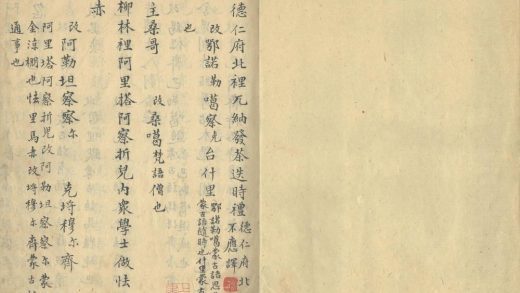 德仁府北裡兀納發荼迭時禮 德仁府北
不應譯
改鄂諾勒噶察克台什里 鄂諾勒噶蒙古語思
蒙古語隨時也什里蒙古
也
主桑哥 改桑噶梵語僧也
柳林裡阿里塔阿察折兒內衆學士做怯
赤
改阿勒坦察察尔 克埒穆尔齊
阿里塔阿察折兒改阿勒坦察察尔蒙
金涼棚也怯里馬赤改埒穆尔齊蒙古
通事也